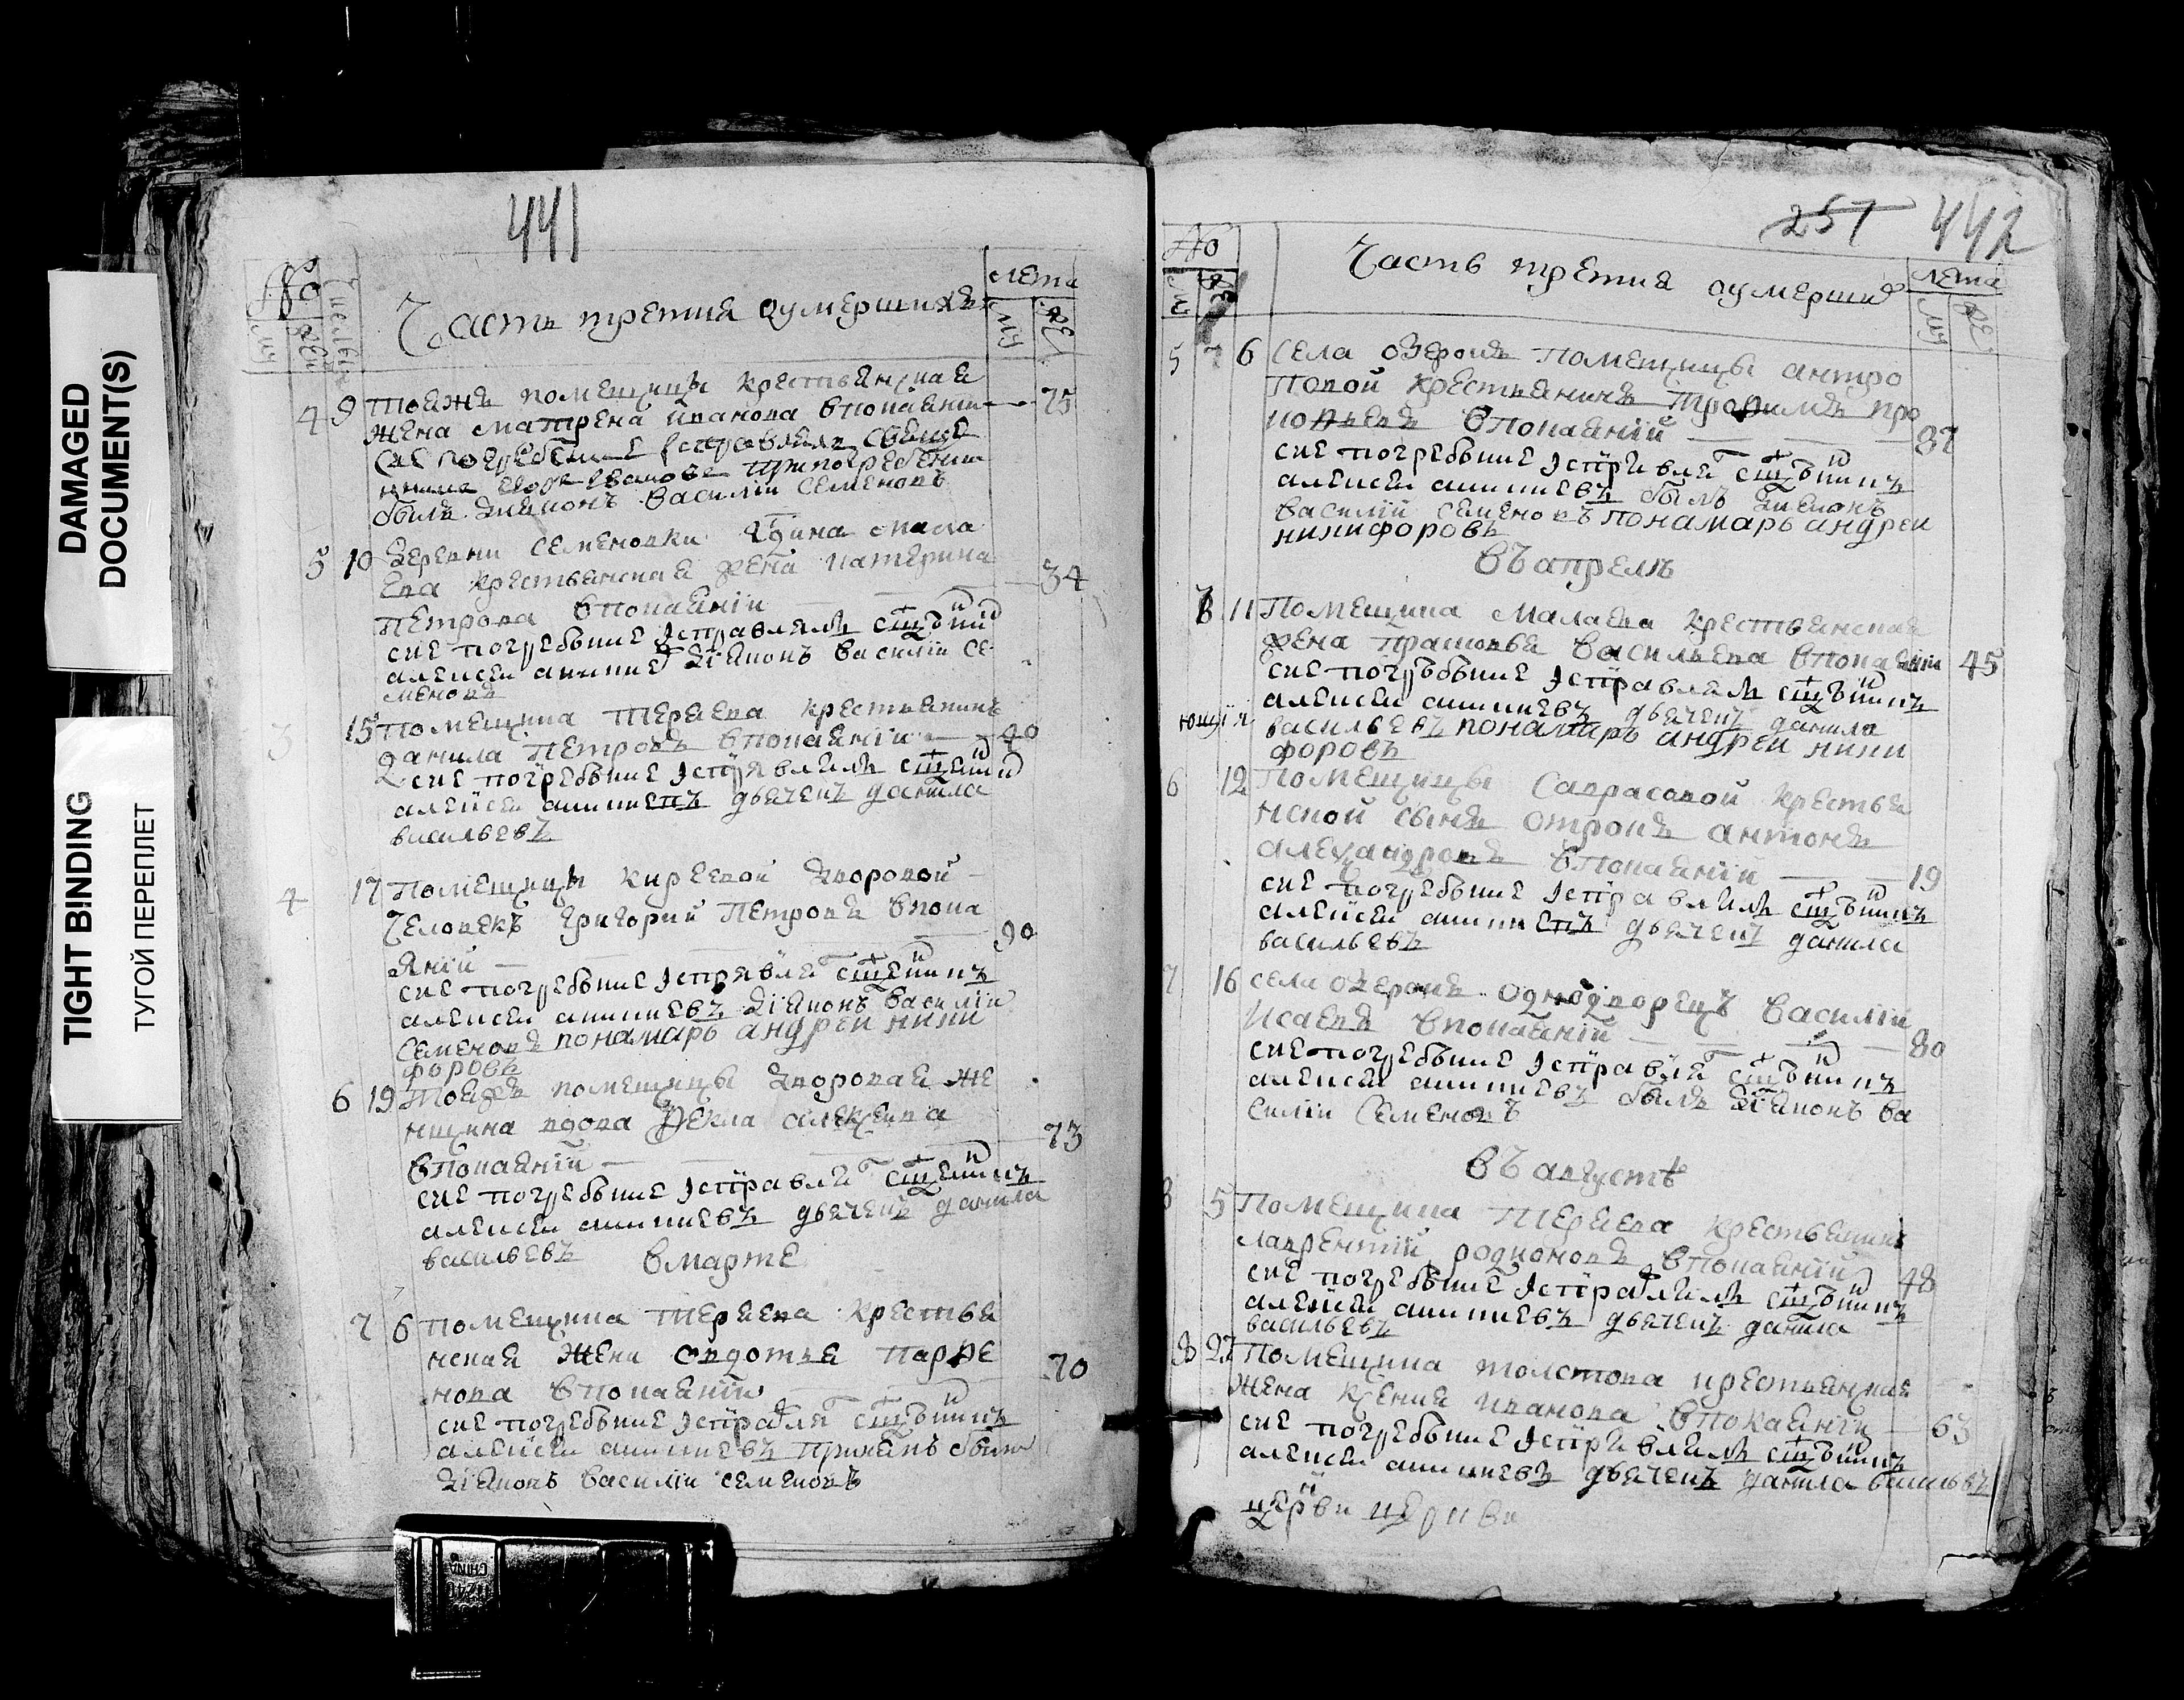 DAMAGED
DOCUMENT(S)
TIGHT BINDING
ТУГОЙ ПЕРЕПЛЕТ
441
№
му
жен
числѣ
Часть третия оумершихъ
лета
му
же
4 9 тояжъ помещицы крестьянская
жена матрена иванова впокаянии 75
сие погребение
былъ диаконъ василии семеновъ
5 10 деревни семеновки
ева крестьянская жена катерина 34
петрова впокаяніи
сие погребѣние исправляли
алексеи аникие діаконъ василіи се
меновъ
3 15 помещика крестьянинъ
данила петровъ впокаяніи 40
сие погребѣние исправляли
алексеи аникиевъ дьячекъ данила
васильевъ
4 17 помещицы киреевой дворовой
человекъ григорий петровъ впока
яній 90
сие погребѣние исправля
алексеи аникиевъ діаконъ василіи
семеновъ понамарь андреи ники
форовъ
6 19 тоежъ помещицы дворовая же
нщина вдова фекла алексеева
впокаяніи 73
сие погребѣние исправля
алексеи аникиевъ дьячекъ данила
васильевъ
вмарте
7 6 помещика крестья
нская жена овдотья парфе
нова впокаяніи 70
сие погребѣние исправля
алексеи аникиевъ былъ
діаконъ василіи семеновъ
257 442
№
Часть третия оумерши
лета
му
же
5 7 6 села озерокъ помещицы антро
повой крестьянинъ трофимъ про
кофьевъ впокаяній 87
сие погребѣние исправля
алексеи аникиевъ былъ диаконъ
василій семеновъ понамарь андреи
никифоровъ
въ апрелѣ
8 11 помещика малаева крестьянская
жена прасковья васильева впокаяніи 45
сие погрѣбѣние исправляли
алексеи аникиевъ дьячекъ данила
васильевъ понамарь андреи ники
форовъ
6 12 помещицы саврасовой крестья
нской сынъ отрокъ антонъ
александровъ впокаяній 19
сие погребѣние исправляли
алексеи аникиевъ дьячекъ данила
васильевъ
7 16 села озерокъ однодворецъ василіи
исаевъ впокаяній 80
сие погребѣние исправля
алексеи аникиевъ былъ діаконъ ва
силіи семеновъ
въ августѣ
8 5 помещика крестьянинъ
лаврентий родионовъ впокаяній 48
сие погребѣние исправляли
алексеи аникиевъ дьячекъ данила
васильевъ
8 27 помещика толстова крестьянская
жена ксения иванова впокаяніи 63
сие погребѣние исправляли
алексеи аникиевъ дьячекъ данила васильевъ